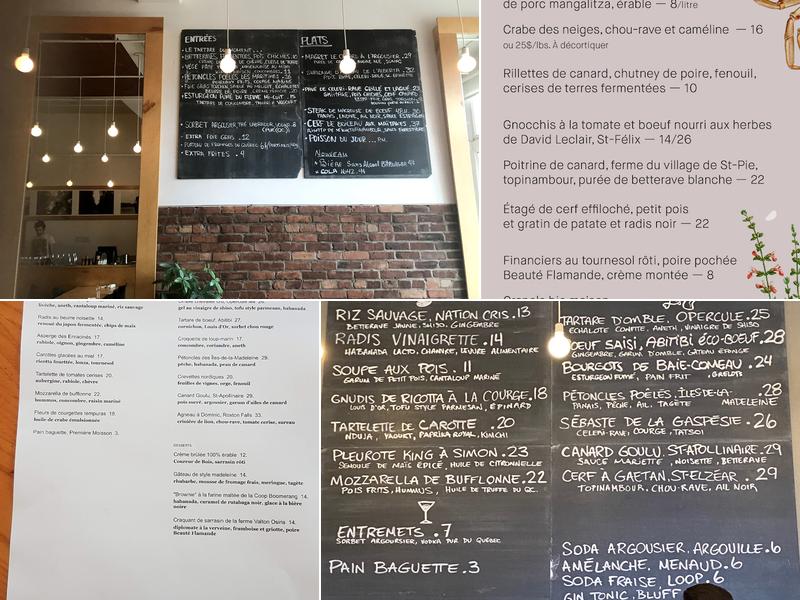 ENTRÉES
• LE TARTARE DU MOMENT...
SORBET ARGOUSIER
• EXTRA FOIE GRAS .12
• EXTRA FRITES . 4
PLATS
• MAGRET DE CANARD À L'ARGOUSIER .29
• STEAK DE MACREUSE DE BOEUF
• CERF DE BOILEAU AUX
• POISSON DU JOUR
NOUVEAU
• BIÈRE SANS ALCOOL
• COLA 1642
de porc mangalitza, érable — 8/litre
Crabe des neiges, chou-rave et caméline — 16
ou 25$/lbs. À décortiquer
Rillettes de canard, chutney de poire, fenouil,
cerises de terres fermentées — 10
Gnocchis à la tomate et boeuf nourri aux herbes
de David Leclair, St-Félix — 14/26
Poitrine de canard, ferme du village de St-Pie,
topinambour, purée de betterave blanche — 22
Étagé de cerf effiloché, petit pois
et gratin de patate et radis noir — 22
Financiers au tournesol rôti, poire pochée
Beauté Flamande, crème montée — 8
livèche, aneth, cantaloup mariné, riz sauvage
Radis au beurre noisette 14.
renoué du japon fermentée, chips de maïs
Asperge des Enracinés 17.
rabiole, oignon, gingembre, caméline
Carottes glacées au miel 17.
ricotta fouettée, lonza, tournesol
Tartelette de tomates cerises 20.
aubergine, rabiole, chèvre
Mozzarella de bufflonne 22.
hummus, concombre, raisin mariné
Fleurs de courgettes tempuras 19.
huile de crabe émulsionnée
Pain baguette, Première Moisson 3.
gel au vinaigre de shiso, tofu style parmesan, habanada
Tartare de boeuf, Abitibi 27.
cornichon, Louis d'Or, sorbet chou rouge
Croquette de loup-marin 17.
concombre, coriandre, aneth
Pétoncles des Îles-de-la-Madeleine 29.
pêche, habanada, peau de canard
Crevettes nordiques 20.
feuilles de vignes, orge, fenouil
Canard Goulu, St-Apollinaire 29.
pois sucré, argousier, garum d'ailes de canard
Agneau à Dominic, Roxton Falls 33.
crinière de lion, chou-rave, tomate cerise, sureau
DESSERTS
Crème brûlée 100% érable 12.
Coureur de Bois, sarrasin rôti
Gâteau de style madeleine 14.
rhubarbe, mousse de fromage frais, meringue, tagète
"Brownie" à la farine maltée de la Coop Boomerang 14.
habanada, caramel de rutabaga noir, glace à la bière
noire
Craquant de sarrasin de la ferme Valton Osiris 14.
diplomate à la verveine, framboise et griotte, poire
Beauté Flamande
RIZ SAUVAGE, NATION CRIS .13
BETTERAVE JAUNE, SHISO, GINGEMBRE
RADIS VINAIGRETTE .14
HABANADA LACTO, CHANVRE, LEVURE ALIMENTAIRE
SOUPE AUX POIS . 11
GARUM DE PETIT POIS, CANTALOUP MARINÉ
GNUDIS DE RICOTTA À LA COURGE .18
LOUIS D'OR, TOFU STYLE PARMESAN, ÉPINARD
TARTELETTE DE CAROTTE .20
NDUJA, YAOURT, PAPRIKA ROYAL, KIMCHI
PLEUROTE KING À SIMON .23
SEMOULE DE MAÏS ÉPICÉ, HUILE DE CITRONNELLE
MOZZARELLA DE BUFFLONNE .22
POIS FRITS, HUMMUS, HUILE DE TRUFFE DU QC.
ENTREMETS . 7
SORBET ARGOUSIER, VODKA PUR DU QUÉBEC
PAIN BAGUETTE . 3
TARTARE D'OMBLE, OPERCULE .25
ÉCHALOTE CONFITE, ANETH, VINAIGRE DE SHISO
BOEUF SAISI, ABITIBI ÉCO-BOEUF .28
GINGEMBRE, GARUM D'OMBLE, GÂTEAU ÉPONGE
BOURGOTS DE BAIE-COMEAU . 24
ESTURGEON FUMÉ, PAIN FRIT
PÉTONCLES POÊLÉS, ÎLES-DE-LA-MADELEINE .28
PANAIS, PÊCHE, AIL, TAGÈTE
SÉBASTE DE LA GASPÉSIE . 26
CELERI-RAVE, COURGE, TATSOI
CANARD GOULU, ST-APOLLINAIRE .29
SAUCE MARIETTE, NOISETTE, BETTERAVE
CERF À GAÉTAN, ST-ELZÉAR . 29
TOPINAMBOUR, CHOU-RAVE, AIL NOIR
SODA ARGOUSIER, ARGOUILLE .6
AMÉLANCHE, MENAUD .6
SODA FRAISE, LOOP .6
GIN TONIC, BLUFF